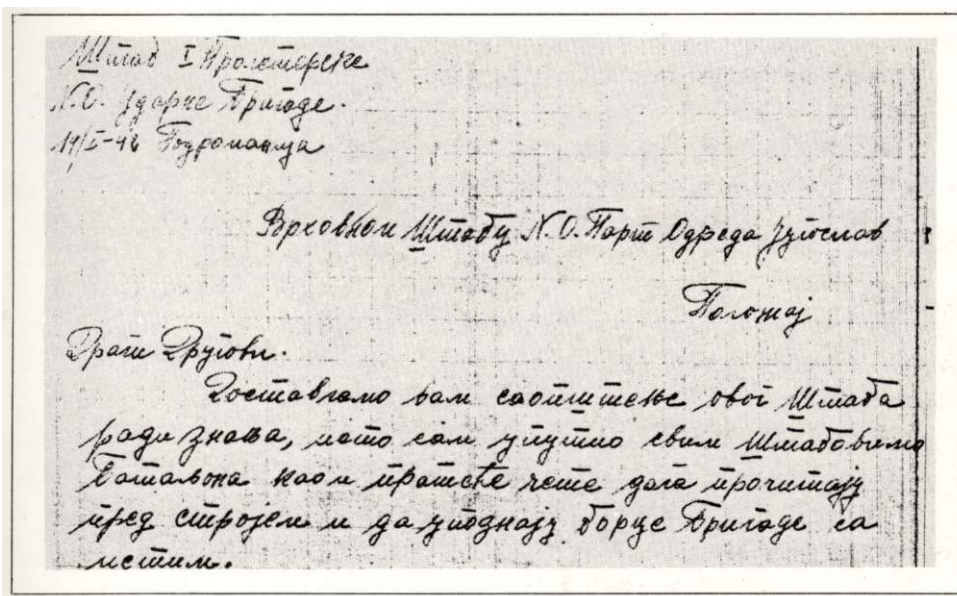 Штаб I Пролетерске
N.O. Ударне Бригаде.
14/I-42 Подроманија
Врховном Штабу N.O. Парт Одреда Југослав
Положај
Драги Другови.
Достављамо вам саопштење овог Штаба
ради знања, исто сам упутио свим Штабовима
Батаљона као и пратеће чете да га прочитају
пред стројем и да упознају борце Бригаде са
истим.